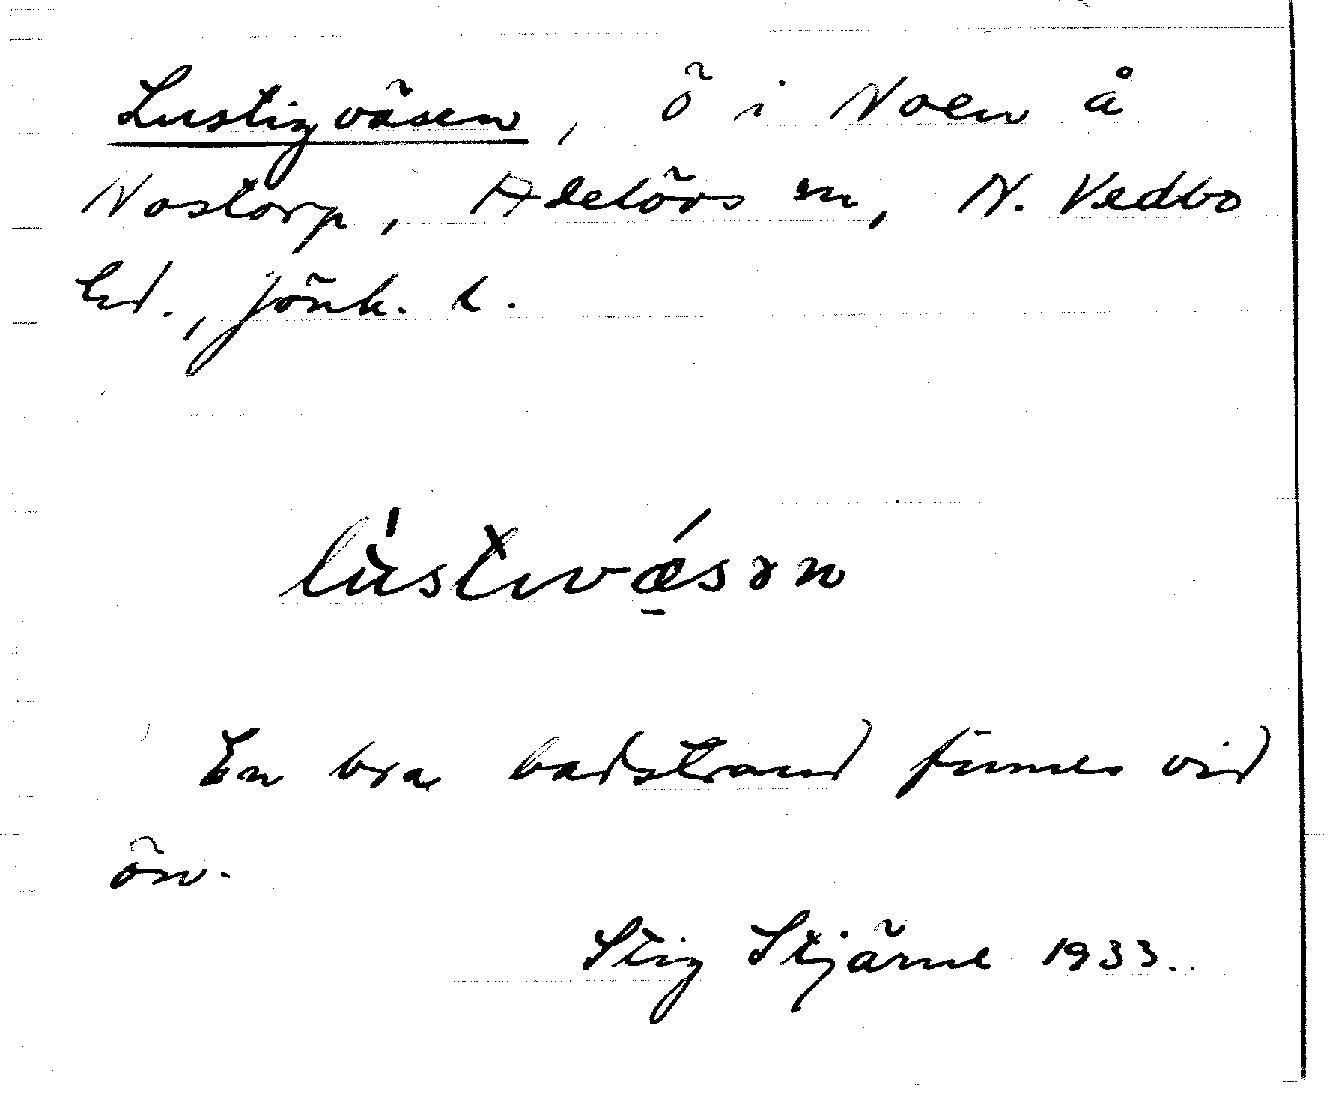 Lustigväsen, ö i Noen å
Nostorp, Adelövs sn, N. Vedbo
hd., Jönk. l.
lùstivǽsən
En bra badstrand finnes vid
ön.
Stig Stjärne 1933.